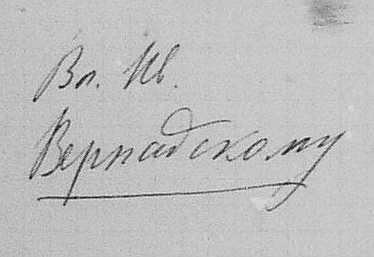 Вл. Ив.
Вернадскому